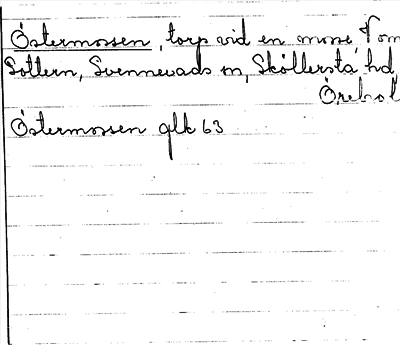 Östermossen, torp vid en mosse, V om
Sottern, Svennevads sn, Sköllersta hd,
Örebro l
Östermossen glk 63